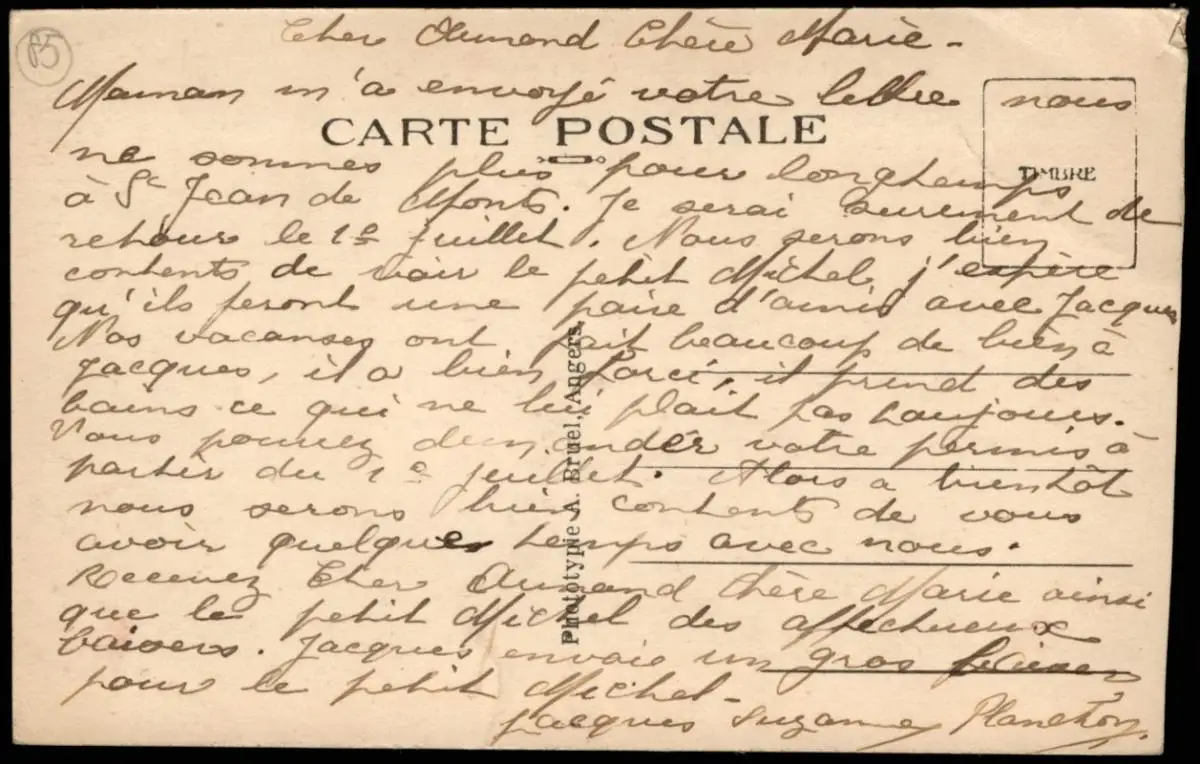 85
Cher Armand Chère Marie -
Maman m'a envoyé votre lettre nous
CARTE POSTALE
ne sommes plus pour longtemps
TIMBRE
à St Jean de Monts. Je serai surement de
retour le 1er juillet. Nous serons bien
contents de voir le petit Michel, j'espère
qu'ils feront une paire d'amis avec Jacques
Nos vacances ont fait beaucoup de bien à
Jacques, il a bien forci, il prend des
bains ce qui ne lui plait pas toujours.
Vous pouvez demander votre permis à
partir du 1er juillet. Alors a bientôt
nous serons bien contents de vous
avoir quelques temps avec nous.
Recevez Cher Armand Chère Marie ainsi
que le petit Michel des affectueux
baisers. Jacques envoie un gros baiser
pour le petit Michel -
Jacques Suzanne
Phototypie A. Bruel, Angers.